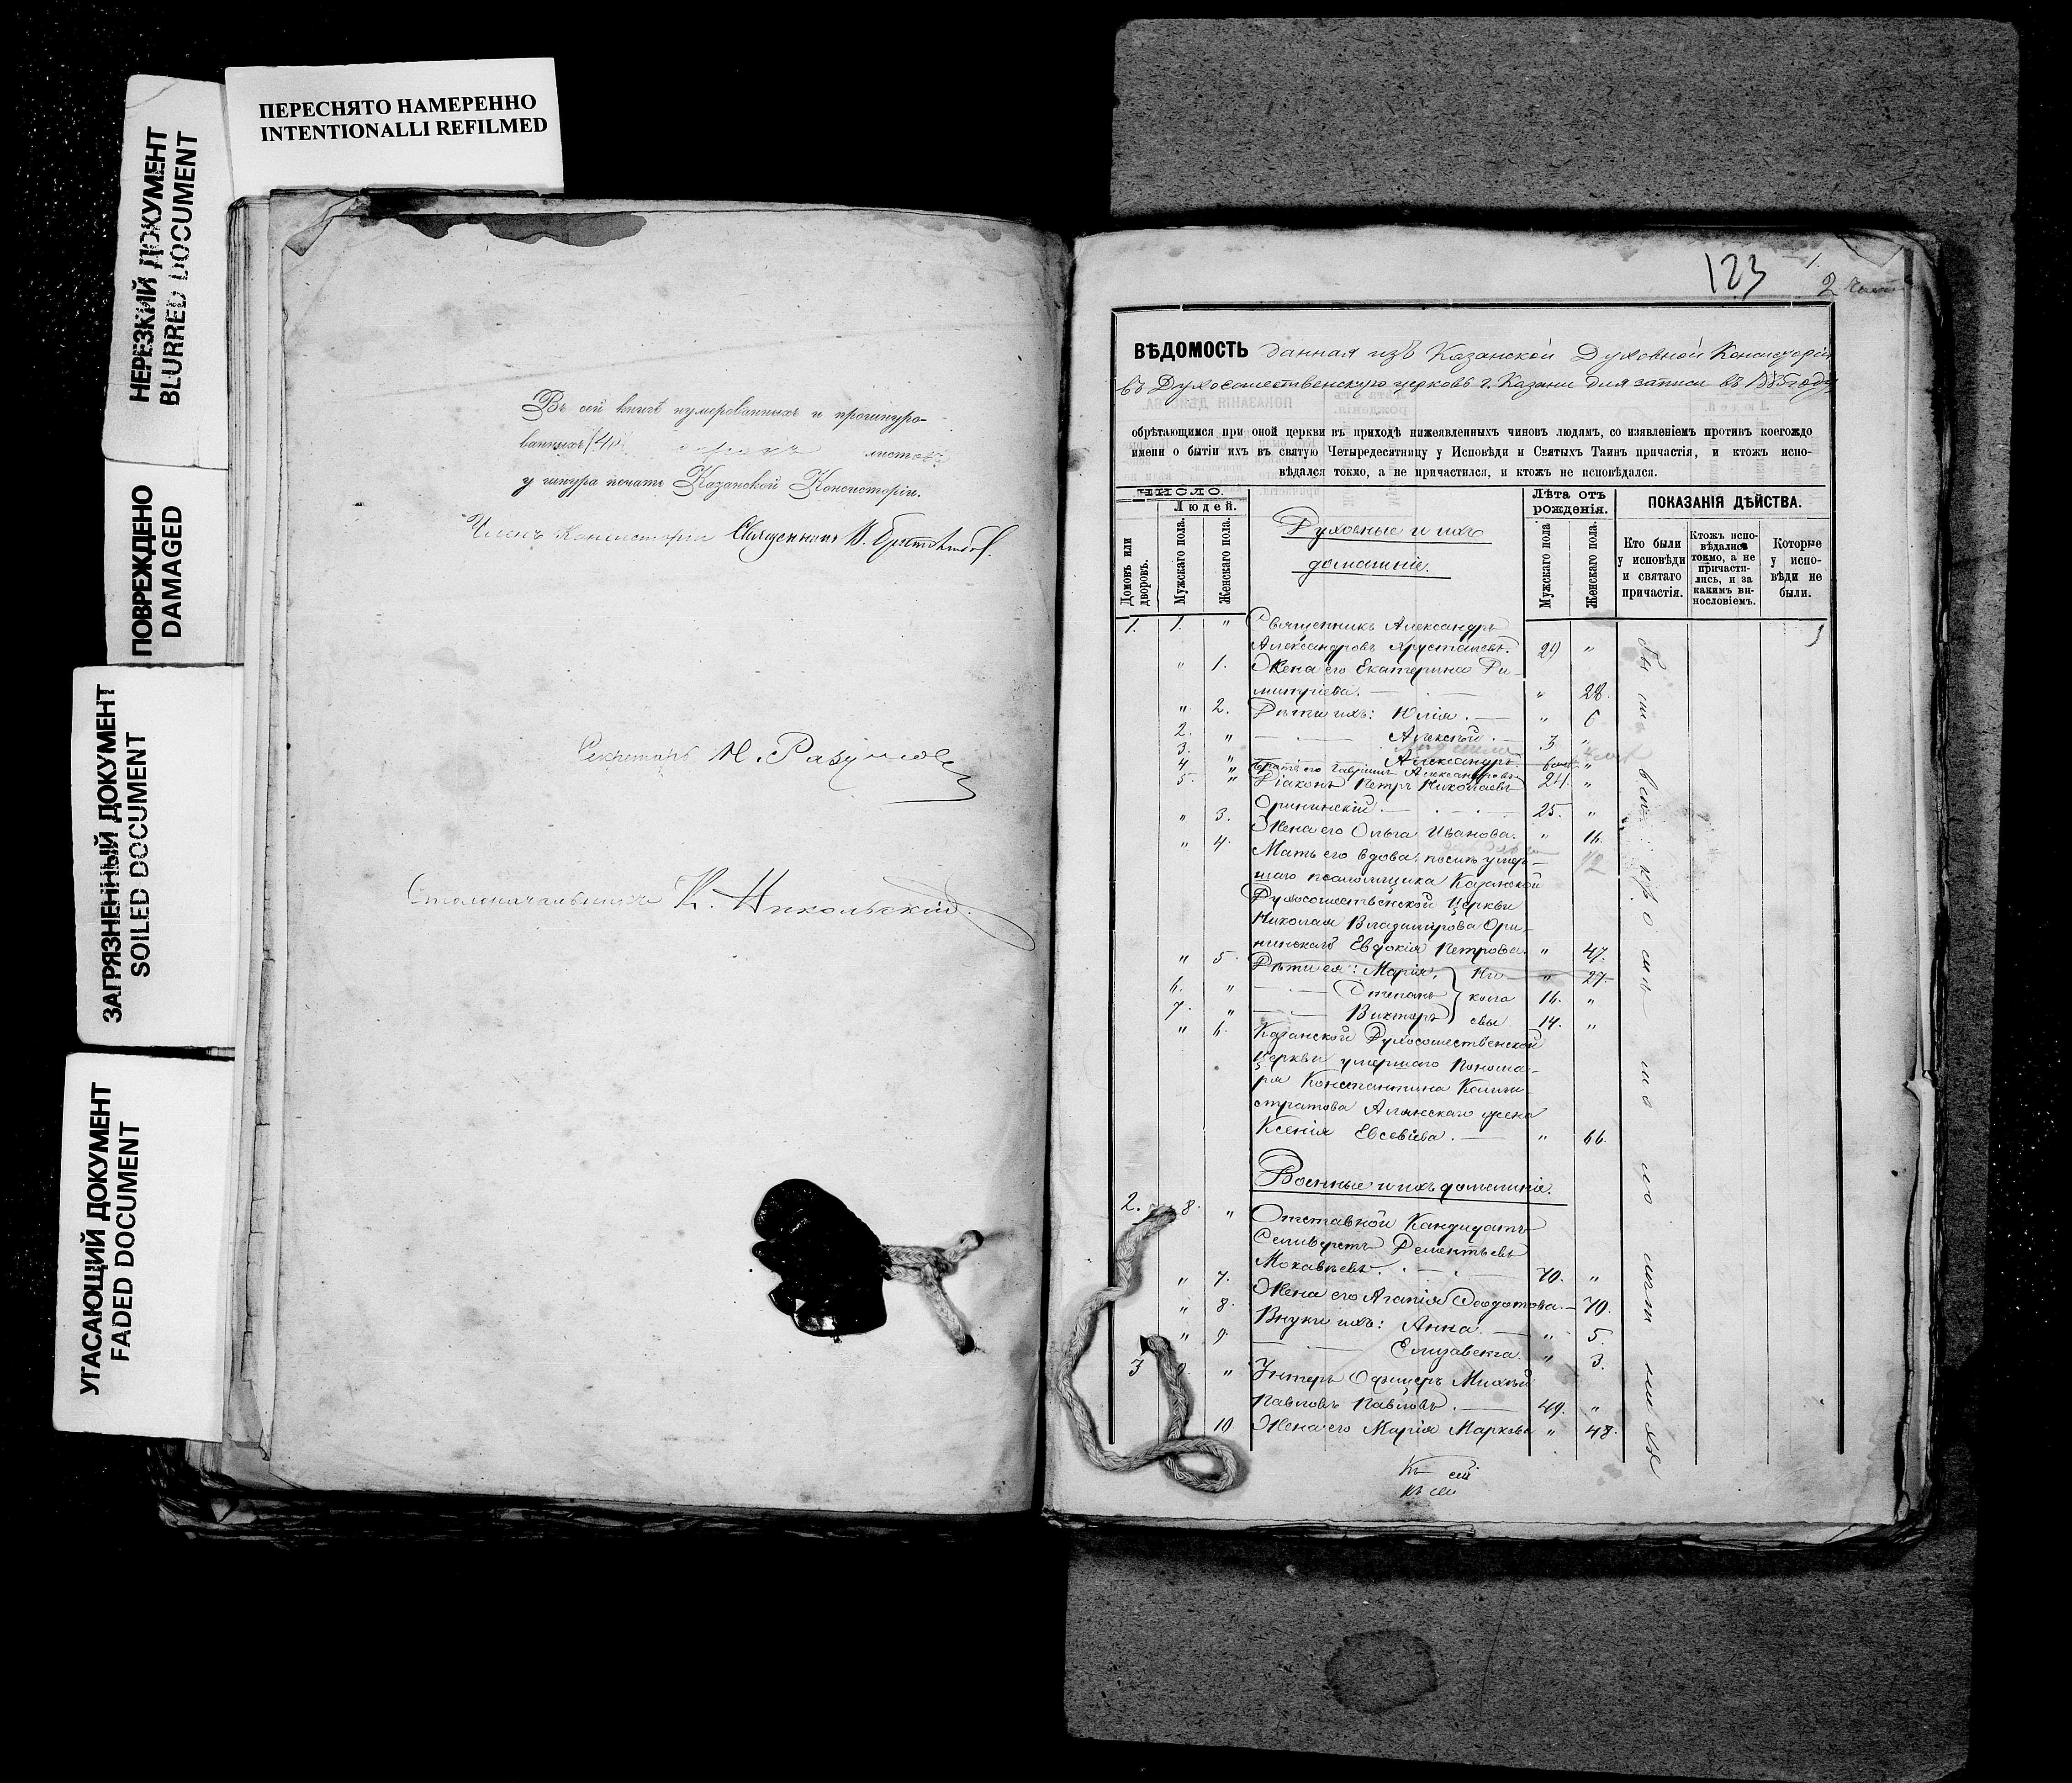 ПЕРЕСНЯТО НАМЕРЕННО
INTENTIONALLI REFILMED
НЕРЕЗКИЙ ДОКУМЕНТ
BLURRED DOCUMENT
ПОВРЕЖДЕНО
DAMAGED
ЗАГРЯЗНЕННЫЙ ДОКУМЕНТ
SOILED DOCUMENT
УГАСАЮЩИЙ ДОКУМЕНТ
FADED DOCUMENT
Въ сей книгѣ нумерованныхъ и прошнуро-
ванныхъ листовъ
у шнура печать Казанской Консисторіи.
Членъ Консисторіи Священникъ В.
Секретарь Н. Разумовъ
Столоначальникъ К. Никольскій.
123
1.
2
ВѢДОМОСТЬ данная изъ Казанской Духовной Консисторіи
въ Духосошественскую церковь г. Казани для записи въ 1885 году
обрѣтающимся при оной церкви въ приходѣ нижеявленныхъ чиновъ людямъ, со изявленіемъ противъ коегождо
имени о бытіи ихъ въ святую Четыредесятницу у Исповѣди и Святыхъ Таинъ причастія, и ктожъ испо-
вѣдался токмо, а не причастился, и ктожъ не исповѣдался.
ЧИСЛО.
Людей.
Домовъ или дворовъ.
Мужскаго пола.
Женскаго пола.
Духовные и ихъ
домашніе.
Лѣта отъ рожденія.
Мужскаго пола
Женскаго пола.
ПОКАЗАНІЯ ДѢЙСТВА.
Кто были у исповѣди и святаго причастія.
Ктожъ исповѣдались токмо, а не причастились, и за какимъ винословіемъ.
Которые у исповѣди не были.
1. 1. " Священникъ Александръ
Александровъ Хрусталевъ. 29 "
" 1. Жена его Екатерина Ди-
митріева. " 28.
" 2. Дѣти ихъ: Юлія. " 6
2. " Алексѣй. 3 "
3. " Александръ
4 " Братъ его Гавріилъ Александровъ 24. "
5. " Діаконъ Петръ Николаевъ
Оринінскій. 25. "
" 3. Жена его Ольга Иванова. " 16.
" 4. Мать его вдова, послѣ умер-
шаго псаломщика Казанской
Духосошественской Церкви
Николая Владимірова Ори-
нинскаго Евдокія Петрова " 47.
" 5. Дѣти ея: Марія. Ни- " 27.
6. " Степанъ кола 16. "
7. " Викторъ евы 14. "
" 6. Казанской Духосошественской
Церкви умершаго Понома-
ря Константина Калли-
стратова жена
Ксенія Евсевіева. " 66.
Военные и ихъ домашніе.
2. 8. " Отставной Кандидатъ
Селиверстъ Дементьевъ
Мокавеевъ. 70. "
" 7. Жена его Агапія Ѳеодотова. 70.
" 8. Внуки ихъ: Анна. " 5.
" 9. Елизавета. " 3.
3 " Унтеръ Офицеръ Михаилъ
Павловъ Павловъ. 49. "
10. Жена его Марія Маркова " 48.
Къ сей